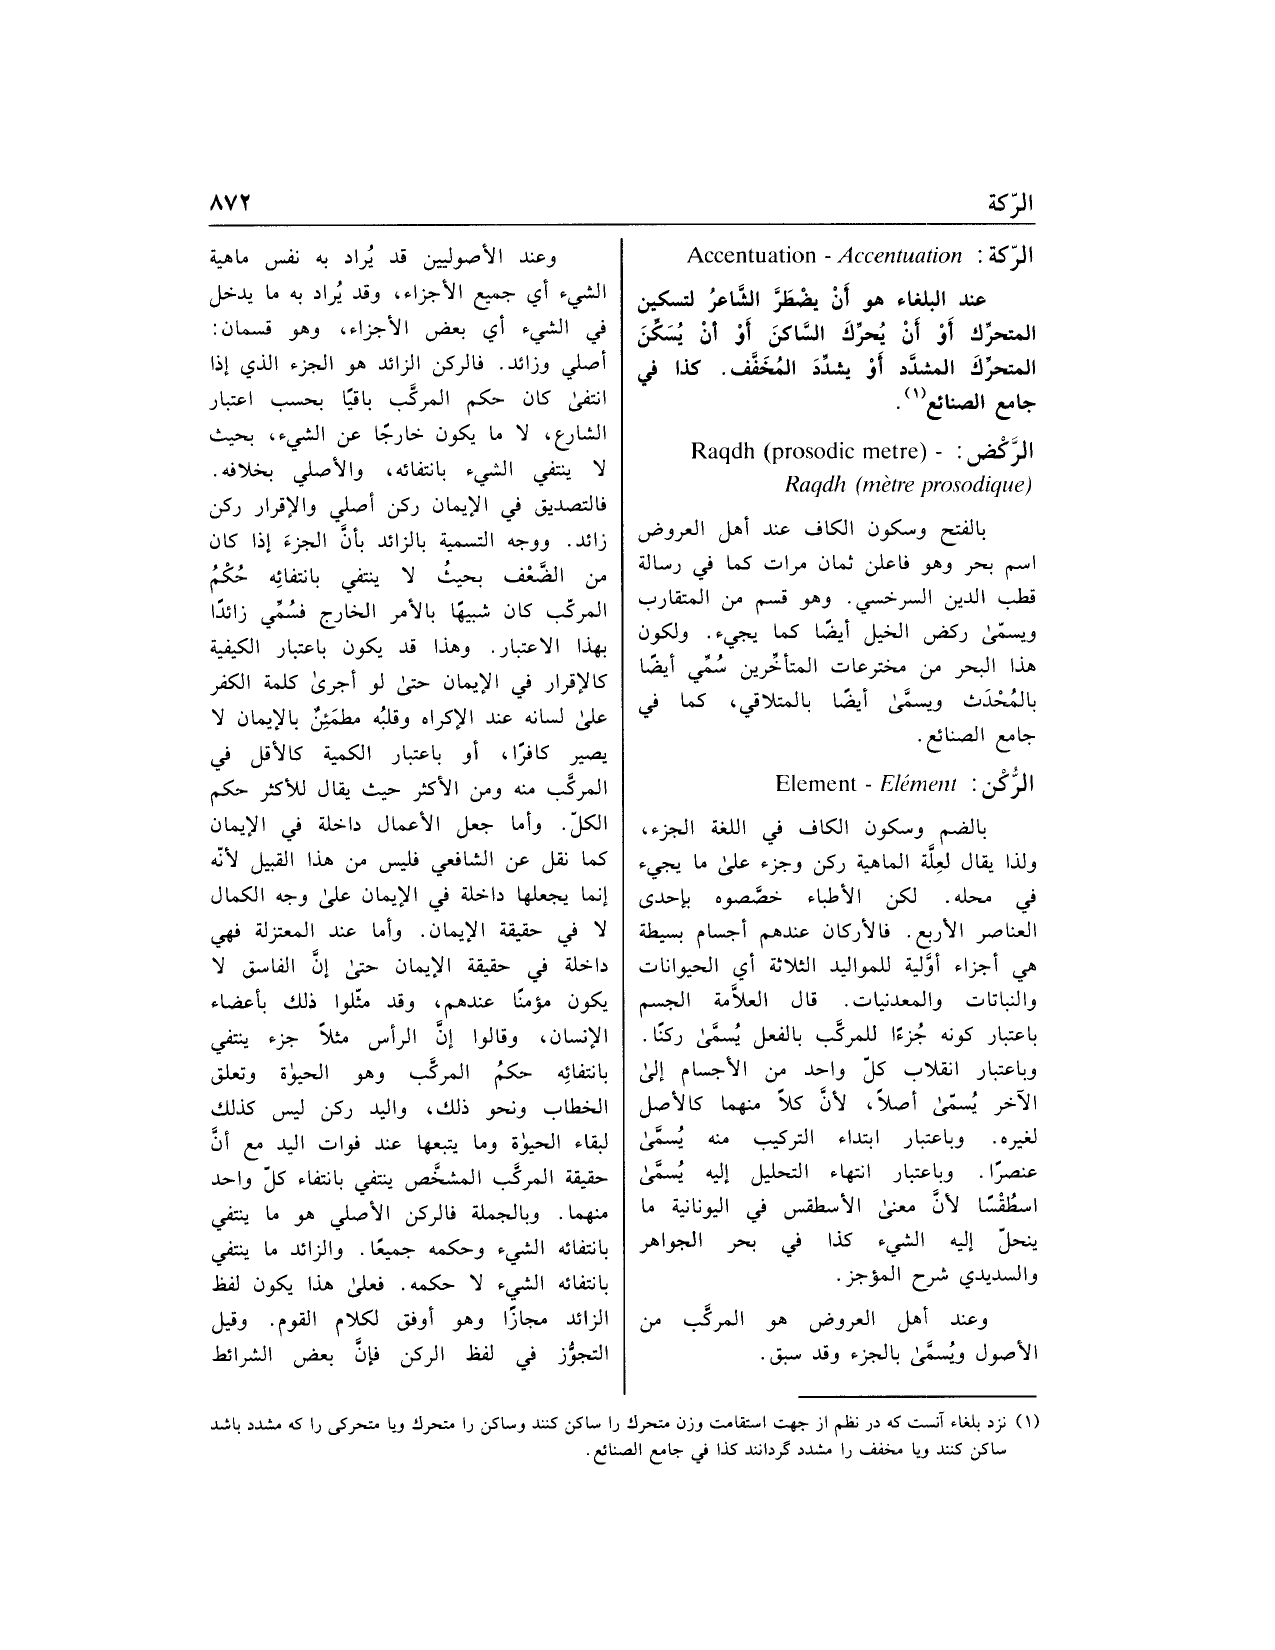 الرّكة
٨٧٢
الرّكة : Accentuation - Accentuation
عند البلغاء هو أَنْ يضْطَرَّ الشَّاعرُ لتسكين
المتحرِّك أَوْ أَنْ يُحرِّكَ السَّاكنَ أَوْ أنْ يُسَكِّنَ
المتحرِّكَ المشدَّد أَوْ يشدِّدَ المُخَفَّف. كذا في
جامع الصنائع(١).
الرَّكْض : Raqdh (prosodic metre) -
Raqdh (mètre prosodique)
بالفتح وسكون الكاف عند أهل العروض
اسم بحر وهو فاعلن ثمان مرات كما في رسالة
قطب الدين السرخسي. وهو قسم من المتقارب
ويسمّىٰ ركض الخيل أيضًا كما يجيء. ولكون
هذا البحر من مخترعات المتأخِّرين سُمِّي أيضًا
بالمُحْدَث ويسمَّىٰ أيضًا بالمتلاقي، كما في
جامع الصنائع.
الرُّكْن : Element - Elément
بالضم وسكون الكاف في اللغة الجزء،
ولذا يقال لعِلَّة الماهية ركن وجزء علىٰ ما يجيء
في محله. لكن الأطباء خصَّصوه بإحدى
العناصر الأربع. فالأركان عندهم أجسام بسيطة
هي أجزاء أوَّلية للمواليد الثلاثة أي الحيوانات
والنباتات والمعدنيات. قال العلاَّمة الجسم
باعتبار كونه جُزءًا للمركَّب بالفعل يُسمَّىٰ ركنًا.
وباعتبار انقلاب كلّ واحد من الأجسام إلىٰ
الآخر يُسمّىٰ أصلاً، لأنَّ كلاً منهما كالأصل
لغيره. وباعتبار ابتداء التركيب منه يُسمَّىٰ
عنصرًا. وباعتبار انتهاء التحليل إليه يُسمَّىٰ
اسطُقْسًا لأنَّ معنىٰ الأسطقس في اليونانية ما
ينحلّ إليه الشيء كذا في بحر الجواهر
والسديدي شرح المؤجز.
وعند أهل العروض هو المركَّب من
الأصول ويُسمَّىٰ بالجزء وقد سبق.
وعند الأصوليين قد يُراد به نفس ماهية
الشيء أي جميع الأجزاء، وقد يُراد به ما يدخل
في الشيء أي بعض الأجزاء، وهو قسمان:
أصلي وزائد. فالركن الزائد هو الجزء الذي إذا
انتفىٰ كان حكم المركَّب باقيًا بحسب اعتبار
الشارع، لا ما يكون خارجًا عن الشيء، بحيث
لا ينتفي الشيء بانتفائه، والأصلي بخلافه.
فالتصديق في الإيمان ركن أصلي والإقرار ركن
زائد. ووجه التسمية بالزائد بأنَّ الجزءَ إذا كان
من الضَّعْف بحيثُ لا ينتفي بانتفائِه حُكْمُ
المركّب كان شبيهًا بالأمر الخارج فسُمِّي زائدًا
بهذا الاعتبار. وهذا قد يكون باعتبار الكيفية
كالإقرار في الإيمان حتىٰ لو أجرىٰ كلمة الكفر
علىٰ لسانه عند الإكراه وقلبُه مطمَئِنٌ بالإيمان لا
يصير كافرًا، أو باعتبار الكمية كالأقل في
المركَّب منه ومن الأكثر حيث يقال للأكثر حكم
الكلّ. وأما جعل الأعمال داخلة في الإيمان
كما نقل عن الشافعي فليس من هذا القبيل لأنّه
إنما يجعلها داخلة في الإيمان علىٰ وجه الكمال
لا في حقيقة الإيمان. وأما عند المعتزلة فهي
داخلة في حقيقة الإيمان حتىٰ إنَّ الفاسق لا
يكون مؤمنًا عندهم، وقد مثّلوا ذلك بأعضاء
الإنسان، وقالوا إنَّ الرأس مثلاً جزء ينتفي
بانتفائِه حكمُ المركَّب وهو الحيوٰة وتعلق
الخطاب ونحو ذلك، واليد ركن ليس كذلك
لبقاء الحيوٰة وما يتبعها عند فوات اليد مع أنَّ
حقيقة المركَّب المشخَّص ينتفي بانتفاء كلّ واحد
منهما. وبالجملة فالركن الأصلي هو ما ينتفي
بانتفائه الشيء وحكمه جميعًا. والزائد ما ينتفي
بانتفائه الشيء لا حكمه. فعلىٰ هذا يكون لفظ
الزائد مجازًا وهو أوفق لكلام القوم. وقيل
التجوُّز في لفظ الركن فإنَّ بعض الشرائط
(١) نزد بلغاء آنست كه در نظم از جهت استقامت وزن متحرك را ساكن كنند وساكن را متحرك ويا متحركى را كه مشدد باشد
ساكن كنند ويا مخفف را مشدد گردانند كذا في جامع الصنائع.